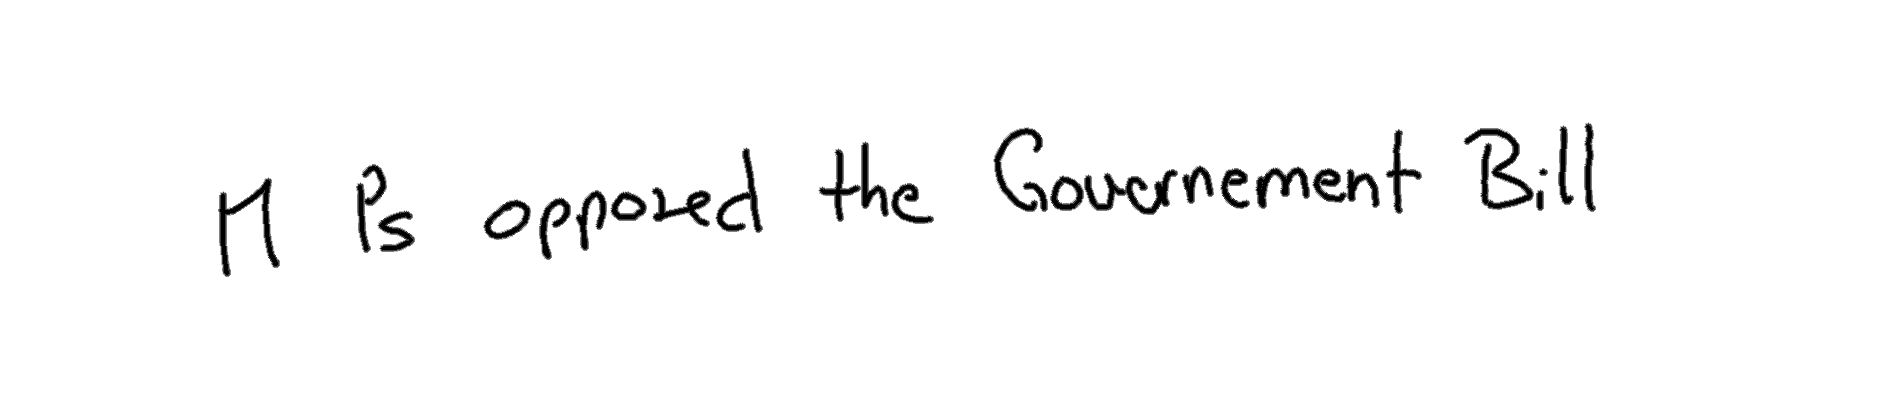 M Ps opposed the Governement Bill